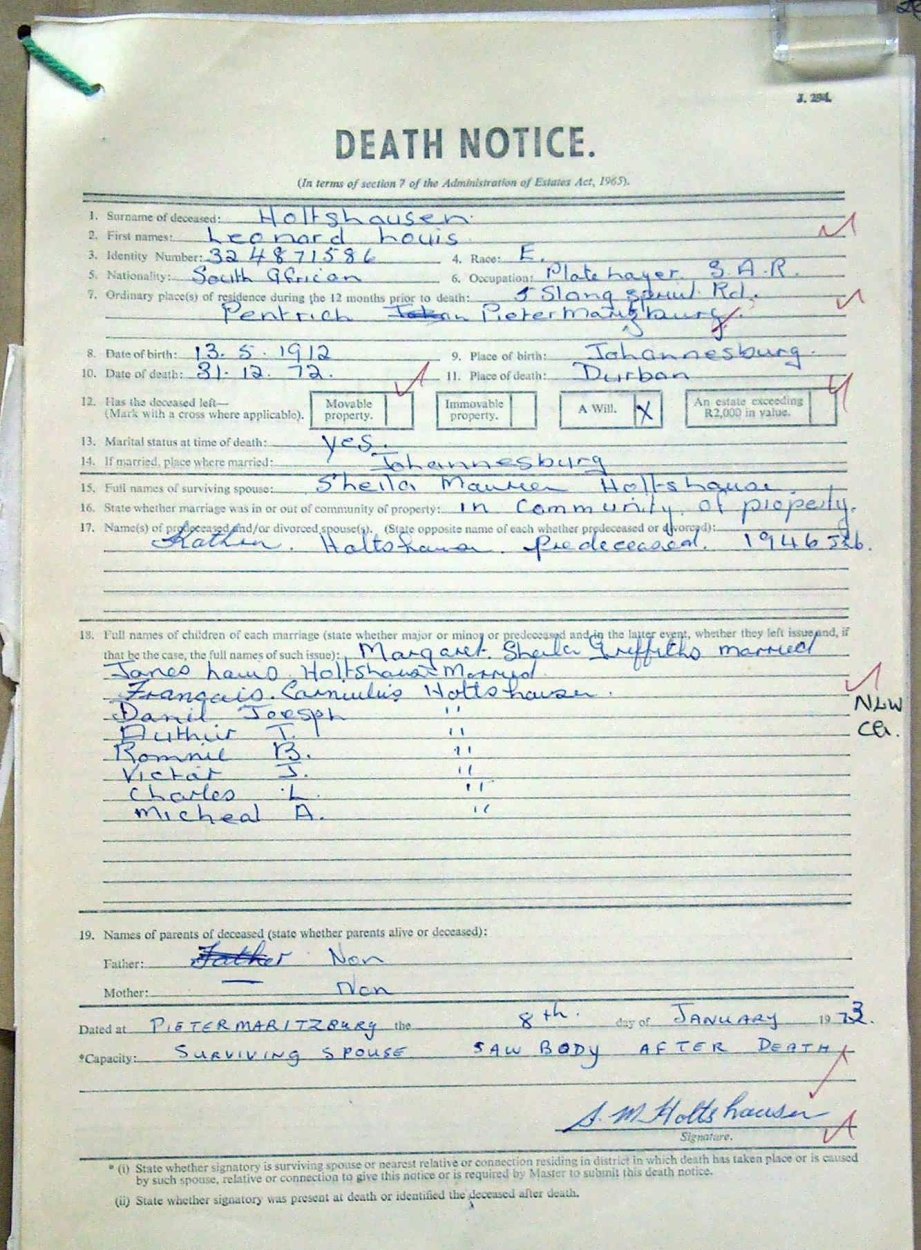 J. 294.
DEATH NOTICE.
(In terms of section 7 of the Administration of Estates Act, 1965).
1. Surname of deceased: Holtshausen
2. First names: Leonard Louis
3. Identity Number: 324871586 4. Race: E.
5. Nationality: South African 6. Occupation: Plate Layer S.A.R.
7. Ordinary place(s) of residence during the 12 months prior to death: 5 Slang spruit Rd.
Pentrich Pietermaritzburg
8. Date of birth: 13. 5. 1912 9. Place of birth: Johannesburg.
10. Date of death: 31. 12. 72. 11. Place of death: Durban
12. Has the deceased left— (Mark with a cross where applicable). Movable property. Immovable property. A Will. X An estate exceeding R2,000 in value.
13. Marital status at time of death: yes.
14. If married, place where married: Johannesburg
15. Full names of surviving spouse: Sheila Maureen Holtshausen
16. State whether marriage was in or out of community of property: in Community of property.
17. Name(s) of predeceased and/or divorced spouse(s). (State opposite name of each whether predeceased or divorced):
Holtshausen predeceased. 1946 Jhb.
18. Full names of children of each marriage (state whether major or minor or predeceased and in the latter event, whether they left issue and, if
that be the case, the full names of such issue): Margaret Sheila Griffiths married
Holtshausen Married
Francais Cornulius Holtshausen.
Danil Joesph "
Authur T. "
Ronnie B. "
Victor J. "
Charles L. "
Micheal A. "
NLW
19. Names of parents of deceased (state whether parents alive or deceased):
Father: Father Non
Mother: — Non
Dated at PIETERMARITZBURG the 8th. day of JANUARY 1973.
*Capacity: SURVIVING SPOUSE SAW BODY AFTER DEATH
S. M. Holtshausen
Signature.
* (i) State whether signatory is surviving spouse or nearest relative or connection residing in district in which death has taken place or is caused
by such spouse, relative or connection to give this notice or is required by Master to submit this death notice.
(ii) State whether signatory was present at death or identified the deceased after death.